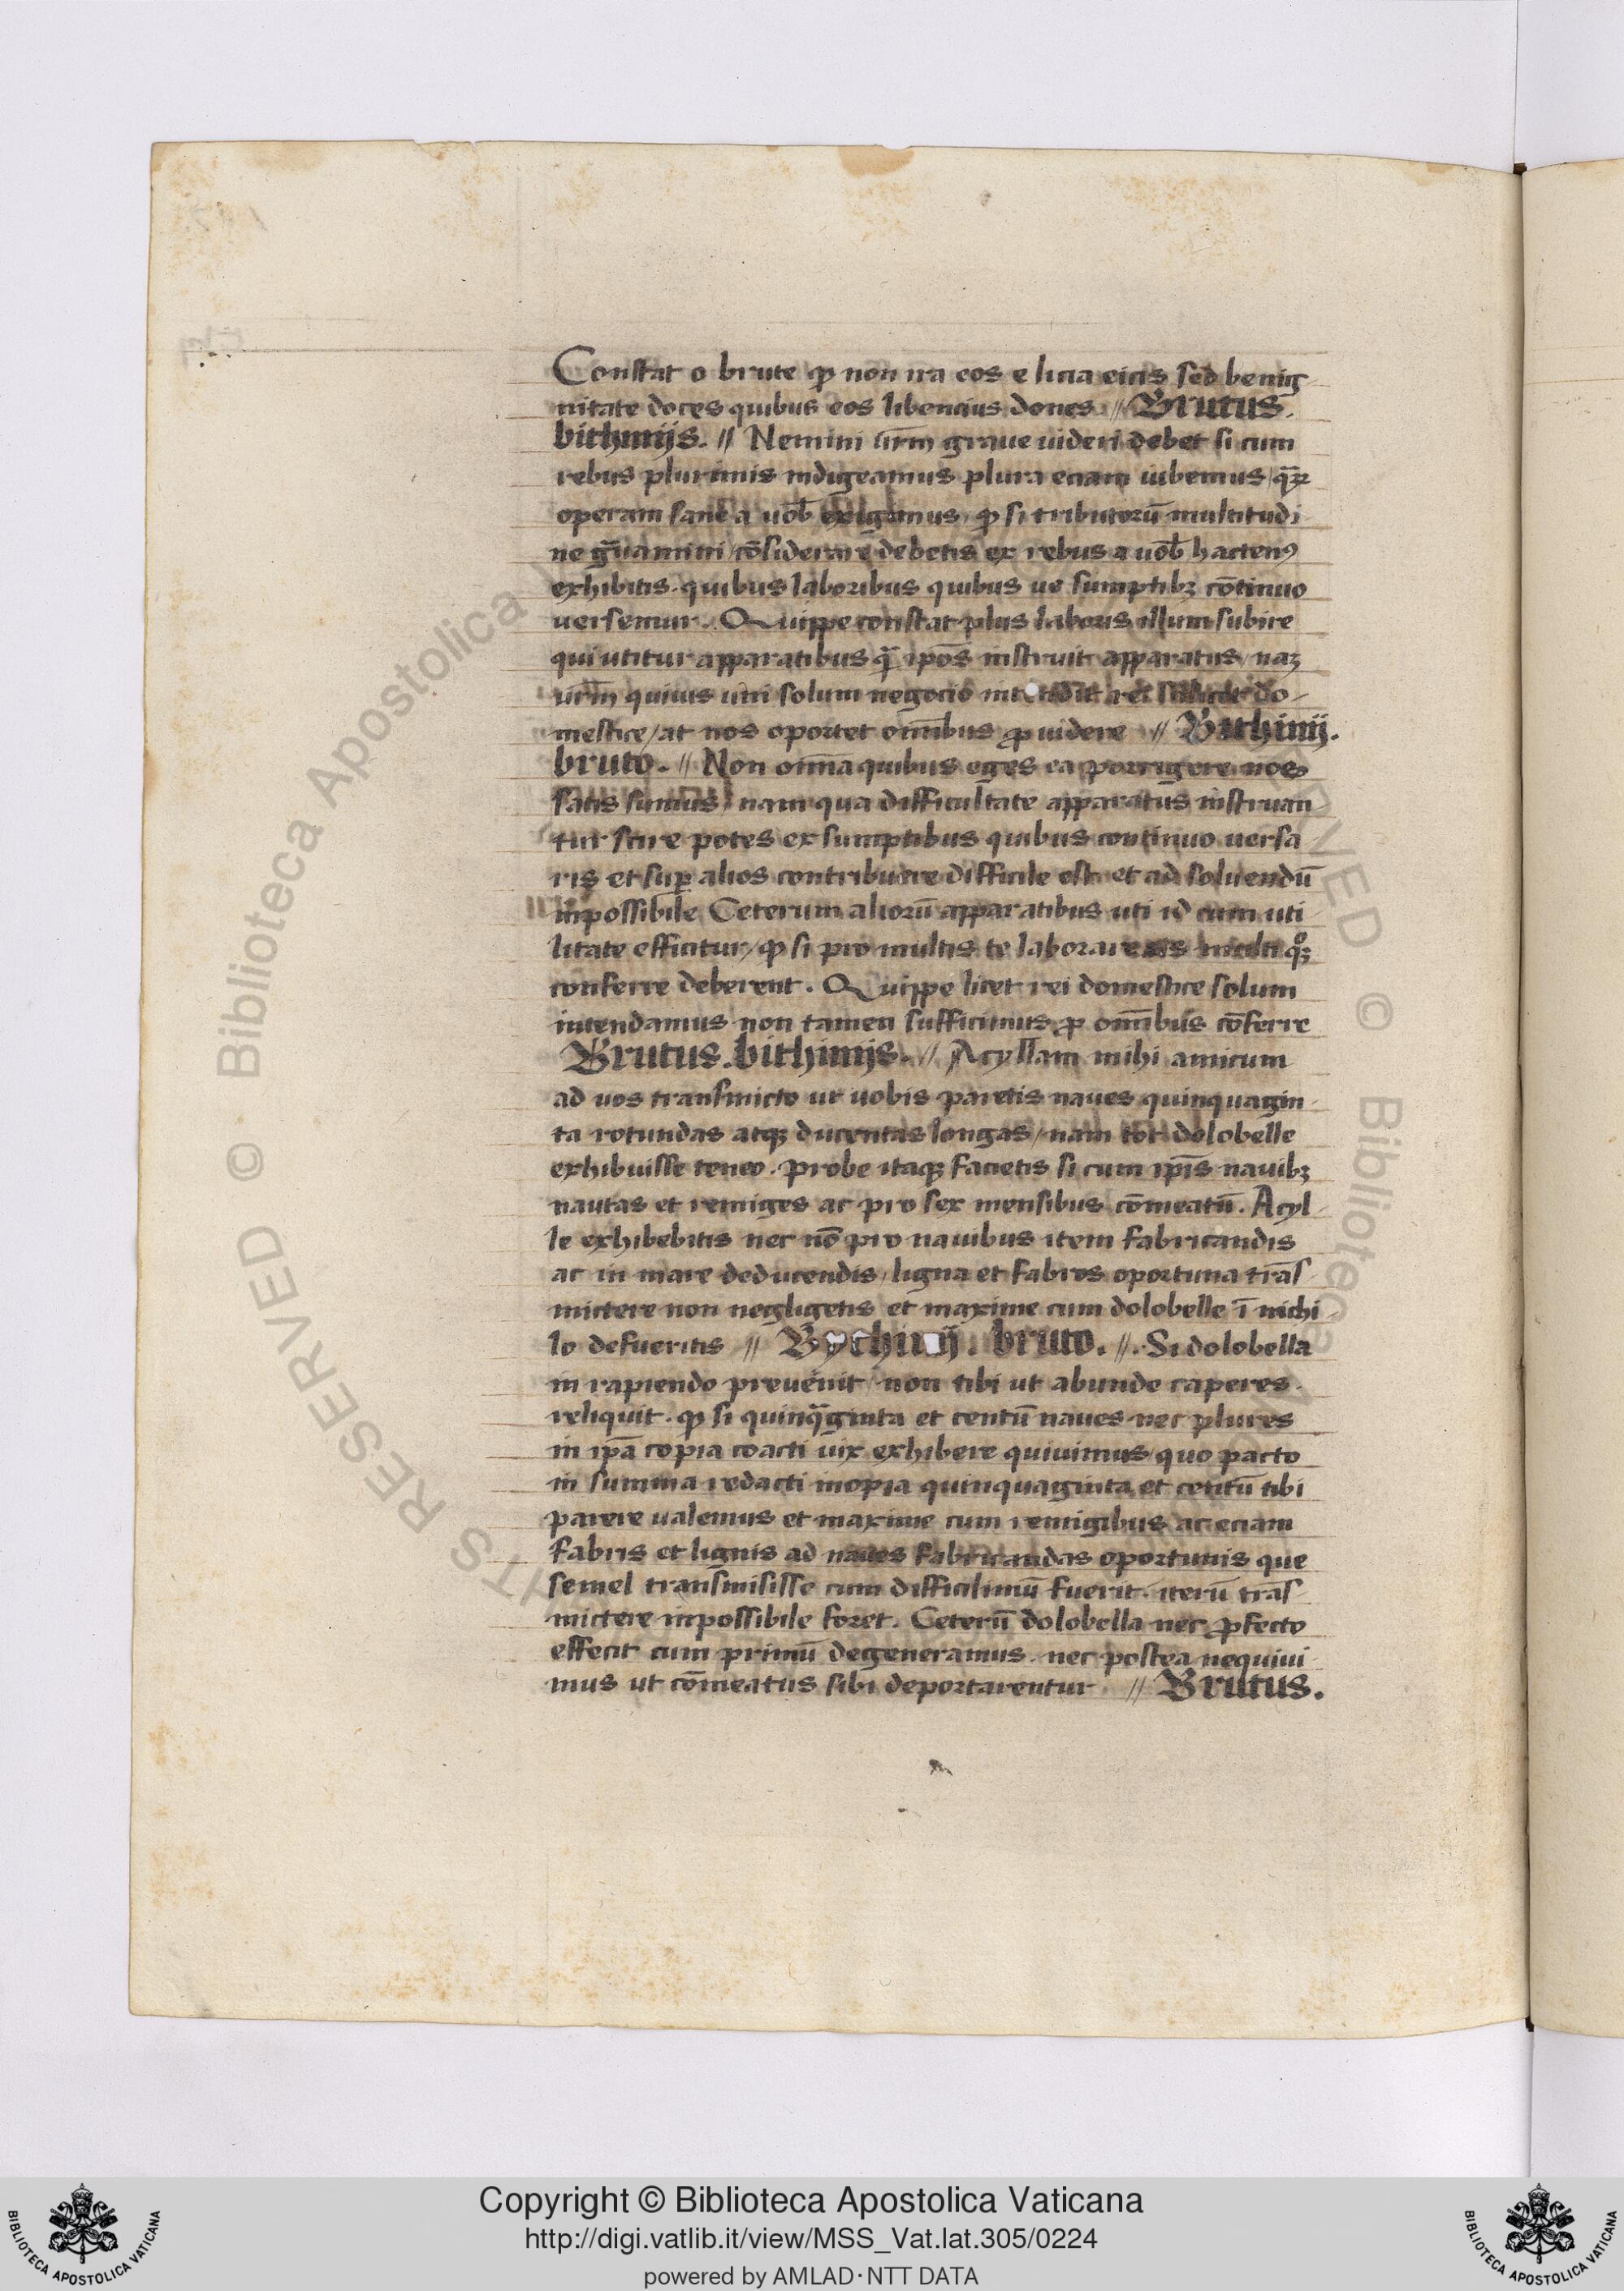 Constat o brute ꝙ non ira eos e licia eicis sed benig
nitate doces quibus eos libencius dones // Brutus.
bithinijs. // Nemini ur̄m graue uideri debet si cum
rebus plurimis indigeamus plura eciam iubemus / q̄ꝛ
operam sane a uob̄ exigimus / ꝙ si tributorū multitudi
ne gͣuamini / cōsiderare debetis ex rebus a uob̄ hactenꝰ
exhibitis . quibus laboribus quibus ue sumptibꝫ cōtinuo
uersemur. Quippe constat plus laboris illum subire
qui utitur apparatibus qͣ ipōs instruit apparatus / naꝫ
ur̄m quiuis uni solum negocio intendit rei scilicet do-
mestice / at nos oportet om̄ibus ꝓuidere // Bithinij.
bruto. // Non om̄ia quibus eges ea porrigere nos
satis sumus / nam qua difficultate apparatus instruan
tur scire potes ex sumptibus quibus continuo uersa
ris et suꝑ alios contribuere difficile est et ad soluendū
inpossibile Ceterum aliorū apparatibus uti id cum uti
litate efficitur / ꝙ si pro multis te laborare multi qꝫ
conferre deberent. Quippe licet rei domestice solum
intendamus non tamen sufficimus ꝓ om̄ibus cōferre
Brutus . bithinijs. // Acyllam mihi amicum
ad uos transmicto ut uobis paretis naues quinquagin
ta rotundas atqꝫ ducentas longas / nam tot dolobelle
exhibuisse teneo . probe itaqꝫ facietis si cum ip̄is nauibꝫ
nautas et remiges ac pro sex mensibus cōmeatū. Acyl
le exhibebitis nec nō pro nauibus item fabricandis
ac in mare deducendis / ligna et fabros oportuna trās
mictere non negligetis et maxime cum dolobelle ī nichi
lo defueritis // Bychinij. bruto. // . Si dolobella
in rapiendo preuenit / non tibi ut abunde caperes
reliquit . ꝙ si quinqͣginta et centū naues nec plures
in ip̄a copia coacti uix exhibere quiuimus / quo pacto
in summa redacti inopia quinquaginta et centū tibi
parere ualemus et maxime cum remigibus ac eciam
fabris et lignis ad naues fabricandas oportunis que
semel transmisisse cum difficilimū fuerit . iterū trās
mictere inpossibile foret. Ceterū dolobella nec ꝓfecto
effecit cum primū degeneramus . nec postea nequiui
mus ut cōmeatus sibi deportarentur // Brutus.
Copyright © Biblioteca Apostolica Vaticana
http://digi.vatlib.it/view/MSS_Vat.lat.305/0224
powered by AMLAD·NTT DATA
BIBLIOTECA APOSTOLICA VATICANA
BIBLIOTECA APOSTOLICA VATICANA